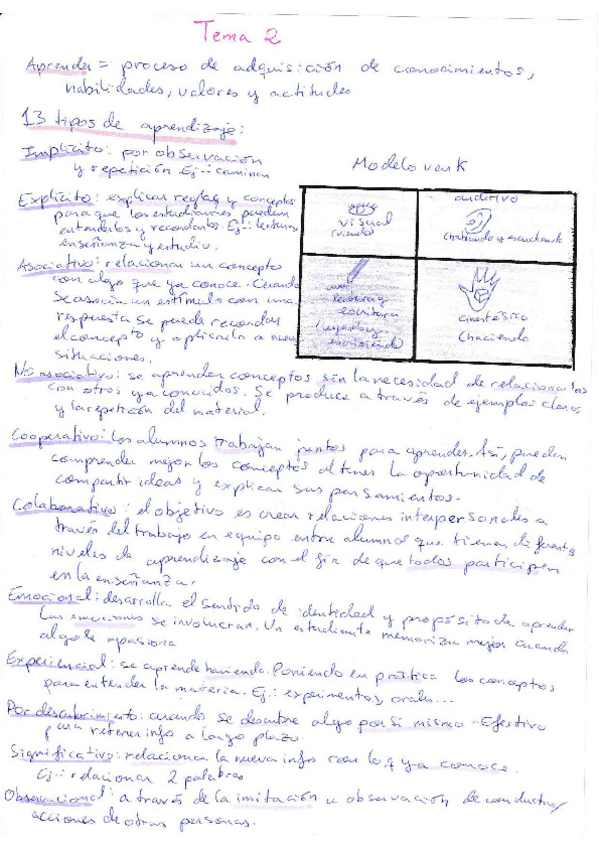 Tema 2
Aprender = proceso de adquisición de conocimientos,
habilidades, valores y actitudes
13 tipos de aprendizaje:
Implícito: por observación
y repetición Ej.: caminar
Modelo verK
Explícito: explicar reglas y conceptos
para que los estudiantes puedan
entenderlos y recordarlos. Ej.: lectura,
enseñanza y estudio.
visual
(viendo)
auditivo
(hablando y escuchando
lectura y
escritura
(leyendo y
escribiendo)
cinestésico
(haciendo)
Asociativo: relacionar un concepto
con algo que ya conoce. Cuando
se asocia un estímulo con una
respuesta se puede recordar
el concepto y aplicarlo a nuevas
situaciones.
No asociativo: se aprenden conceptos sin la necesidad de relacionarlos
con otros ya conocidos. Se produce a través de ejemplos claros
y la repetición del material.
Cooperativo: Los alumnos trabajan juntos para aprender. Así, pueden
comprender mejor los conceptos al tener la oportunidad de
compartir ideas y explicar sus pensamientos.
Colaborativo: el objetivo es crear relaciones interpersonales a
través del trabajo en equipo entre alumnos que tienen diferentes
niveles de aprendizaje con el fin de que todos participen
en la enseñanza.
Emocional: desarrolla el sentido de identidad y propósito de aprender
Las emociones se involucran. Un estudiante memoriza mejor cuando
algo le apasiona
Experiencial: se aprende haciendo. Poniendo en práctica los conceptos
para entender la materia. Ej.: experimentos, orales...
Por descubrimiento: cuando se descubre algo por sí mismo - Efectivo
para retener info a largo plazo.
Significativo: relaciona la nueva info con lo q ya conoce.
Ej.: relacionar 2 palabras
Observacional: a través de la imitación u observación de conductas/
acciones de otras personas.